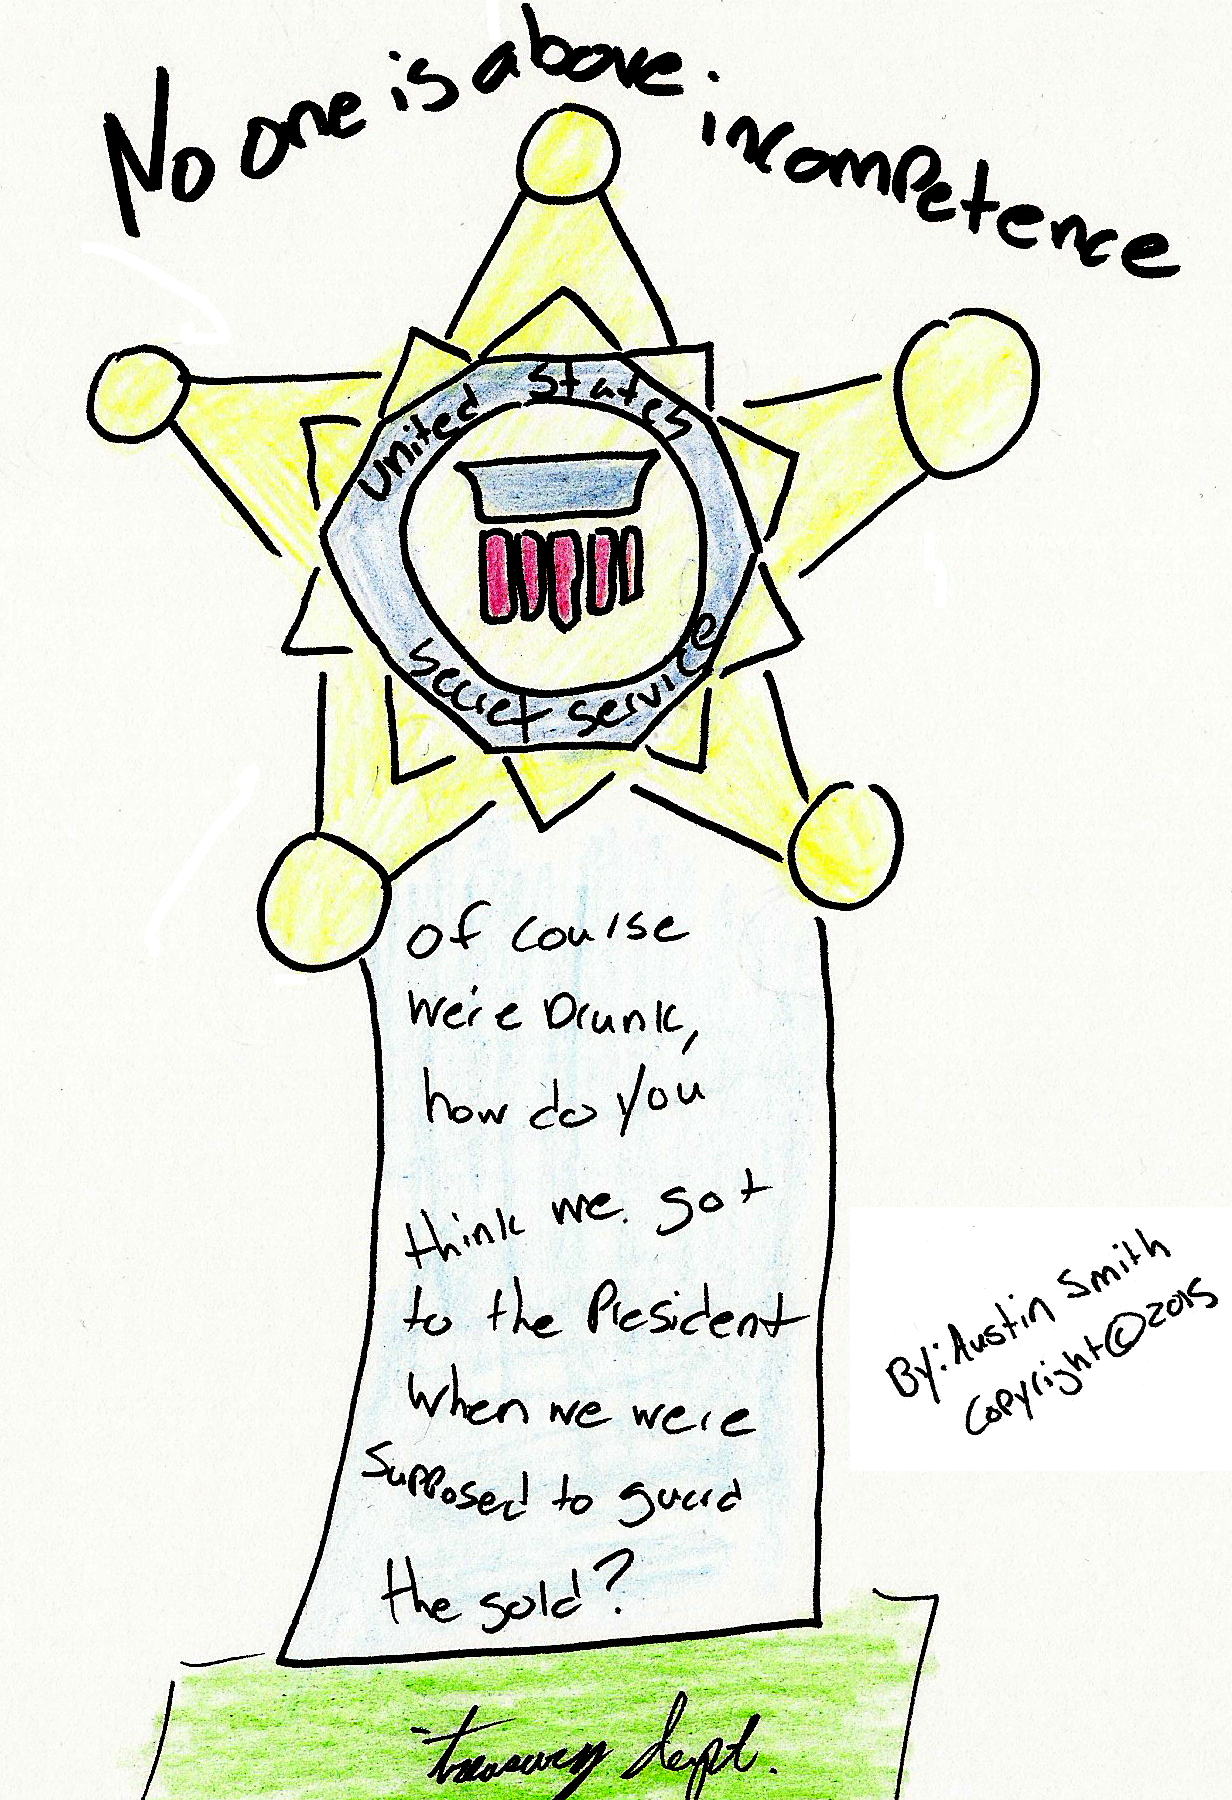 No one is above incompetence
United States
Secret Service
Of course
We're Drunk,
how do you
think we got
to the President
When we were
supposed to guard
the gold?
By: Austin Smith
Copyright © 2015
treasury dept.